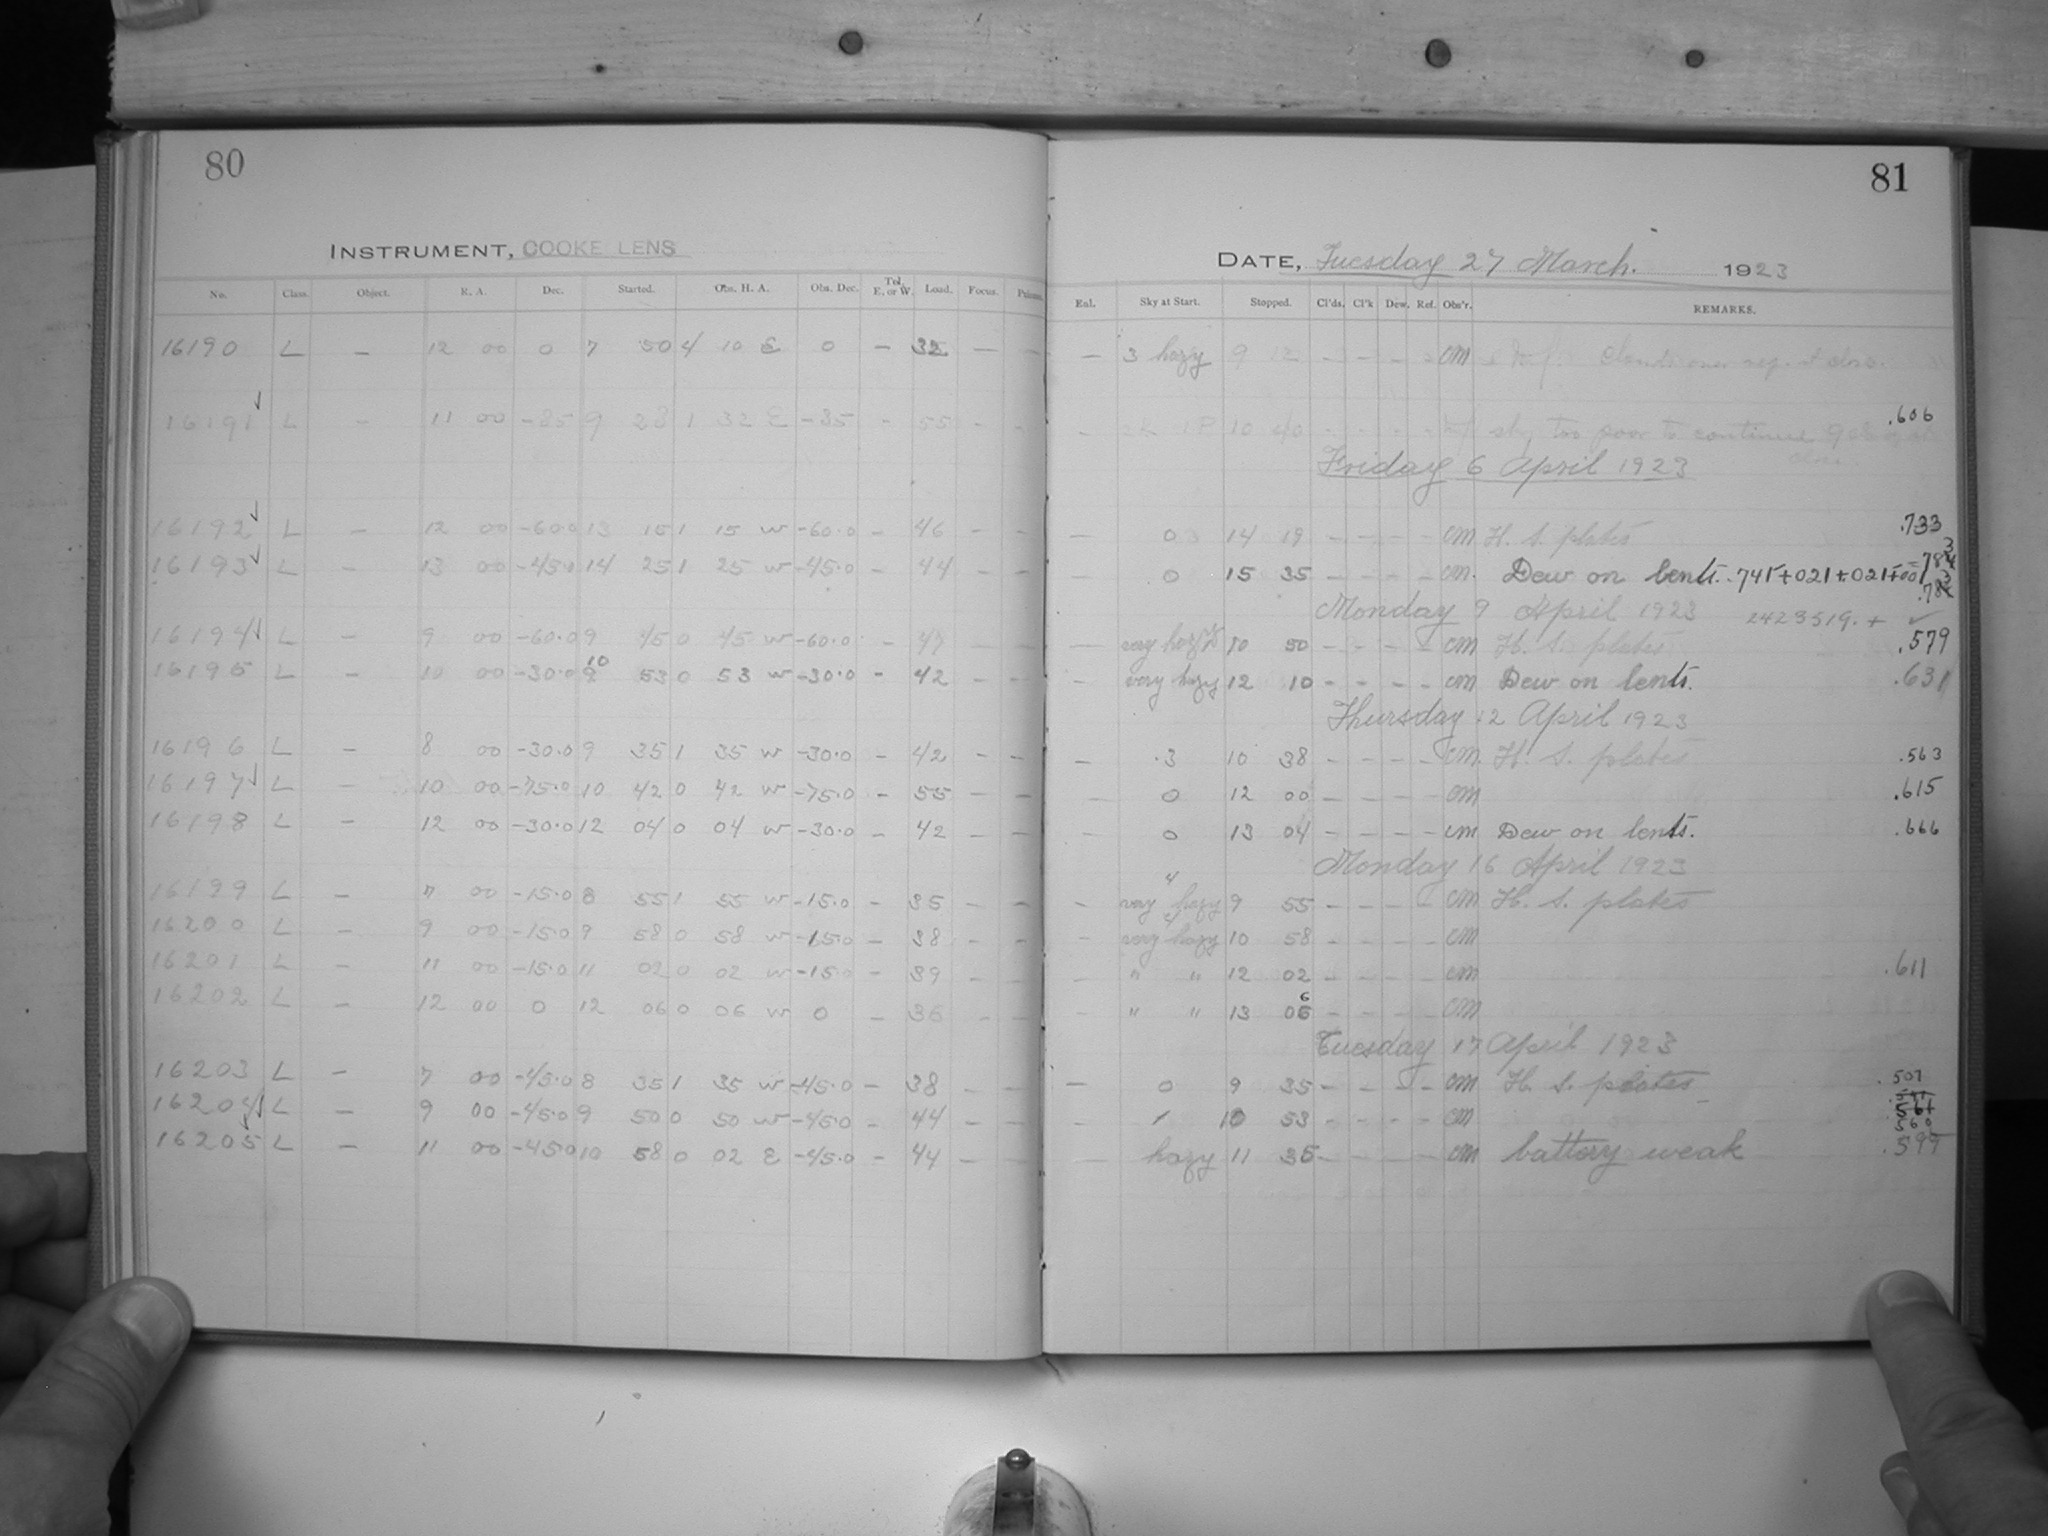 80
INSTRUMENT, COOKE LENS
No. Class. Object. R. A. Dec. Started. Obs. H. A. Obs. Dec. Tel. E. or W. Load. Focus.
16190 L — 12 00 0 7 50 4 10 E 0 — 32 — —
16191 L — 11 00 9 28 1 32 E -35 - 55 - -
16192 L — 12 00 -60.0 13 15 1 15 W -60.0 - 46 - -
16193 L — 13 00 -45.0 14 25 1 25 W -45.0 - 44 - -
16194 L — 9 00 -60.0 9 45 0 45 W -60.0 - 47 - -
16195 L — 10 00 -30.0 10 53 0 53 W -30.0 - 42 - -
16196 L — 8 00 -30.0 9 35 1 35 W -30.0 - 42 - -
16197 L — 10 00 -75.0 10 42 0 42 W -75.0 - 55 - -
16198 L — 12 00 -30.0 12 04 0 04 W -30.0 - 42 - -
16199 L — 7 00 -15.0 8 55 1 55 W -15.0 - 35 - -
16200 L — 9 00 -15.0 9 58 0 58 W -15.0 - 38 - -
16201 L — 11 00 -15.0 11 02 0 02 W -15.0 - 39 - -
16202 L — 12 00 0 12 06 0 06 W 0 - 36 - -
16203 L — 7 00 -45.0 8 35 1 35 W -45.0 - 38 - -
16204 L — 9 00 -45.0 9 50 0 50 W -45.0 - 44 - -
16205 L — 11 00 -45.0 10 58 0 02 E -45.0 - 44 - -
81
DATE, Tuesday 27 March. 1923
Enl. Sky at Start. Stopped. Cl'ds. Cl'k Dew. Ref. Obs'r. REMARKS.
— 3 hazy 9 12 - - - - CM
.606
10 40 - - - - sky too poor to continue
Friday 6 April 1923
— 14 19 - - - - CM H. S. plates .733
— 0 15 35 - - - - CM. Dew on lents. .745+021+021+001
Monday 9 April 1923 2423519. + ✓
— very hazy 10 50 - - - - CM H. S. plates .579
- very hazy 12 10 - - - - CM Dew on lents. .631
Thursday 12 April 1923
— .3 10 38 - - - - CM. H. S. plates .563
— 0 12 00 - - - - CM .615
- 0 13 04 - - - - CM Dew on lents. .666
Monday 16 April 1923
- very hazy 9 55 - - - - CM H. S. plates
- very hazy 10 58 - - - - CM
- " " 12 02 - - - - CM .611
- " " 13 06 - - - - CM
Tuesday 17 April 1923
— 0 9 35 - - - - CM H. S. plates .507
- 10 53 - - - - CM
— hazy 11 35 - - - - CM battery weak .599